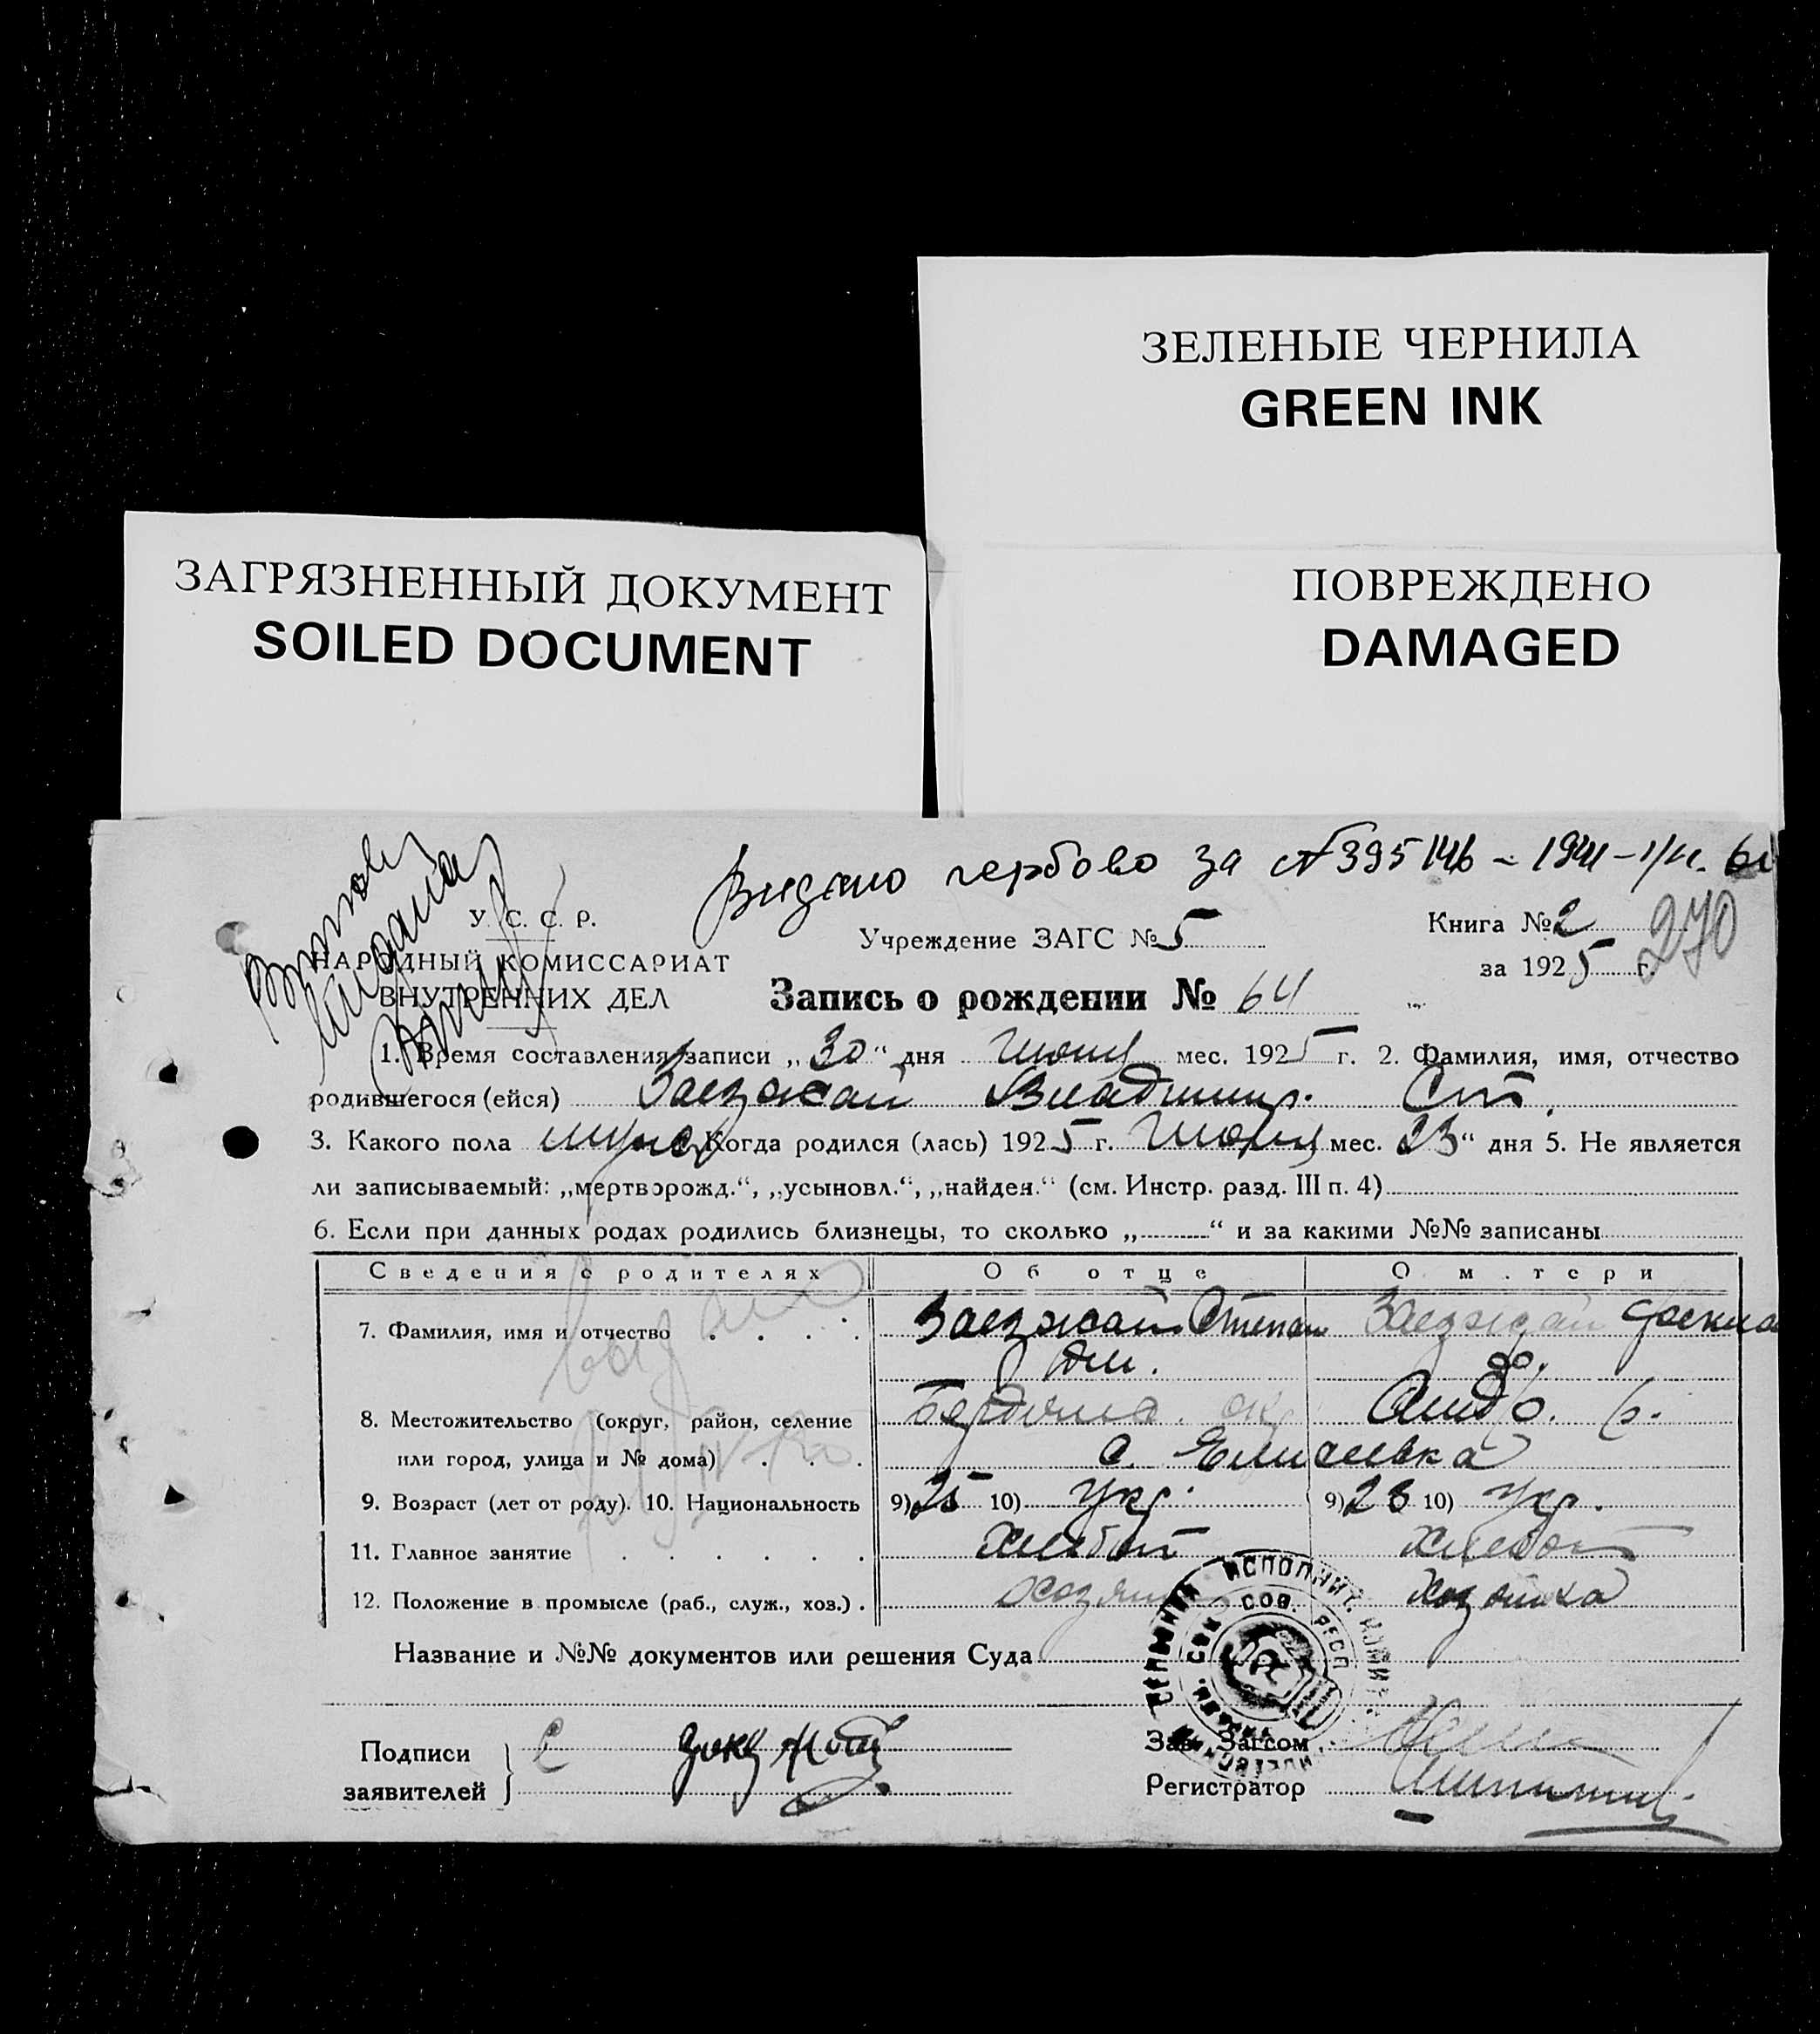 ЗЕЛЕНЫЕ ЧЕРНИЛА
GREEN INK
ЗАГРЯЗНЕННЫЙ ДОКУМЕНТ
SOILED DOCUMENT
ПОВРЕЖДЕНО
DAMAGED
Видано гербово за №395146 – 1941
У. С. С. Р.
НАРОДНЫЙ КОМИССАРИАТ
ВНУТРЕННИХ ДЕЛ
Учреждение ЗАГС № 5
Книга № 2
за 1925 г.
270
Запись о рождении № 64
1. Время составления записи „30“ дня Июня мес. 1925 г. 2. Фамилия, имя, отчество
родившегося (ейся) Заезжай Владимир. Ст.
3. Какого пола мужс Когда родился (лась) 1925 г. Июня мес. 23“ дня 5. Не является
ли записываемый: „мертворожд.“, „усыновл.“, „найден.“ (см. Инстр. разд. III п. 4)
6. Если при данных родах родились близнецы, то сколько „ “ и за какими №№ записаны
Сведения о родителях Об отце О м.тери
7. Фамилия, имя и отчество Заезжай Степан Заезжай
8. Местожительство (округ, район, селение
или город, улица и № дома) с. Елисеевка
9. Возраст (лет от роду). 10. Национальность 9) 25 10) Укр. 9) 23 10) Укр.
11. Главное занятие Хлебоп Хлебоп
12. Положение в промысле (раб., служ., хоз.). Хозяин Хозяйка
Название и №№ документов или решения Суда
Подписи
заявителей
Зав. Загсом
Регистратор